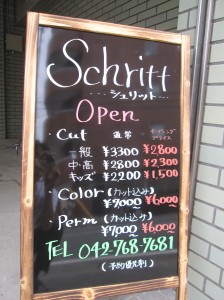 Schritt
シュリット
Open
・Cut 通常 オープニングプライス
一般 ¥3300 ¥2800
中・高 ¥2800 ¥2,300
キッズ ¥2200 ¥1,500
・Color (カット込み)
¥7000 ¥6000〜
・Perm (カット込り)
¥7000 ¥6000〜
TEL 042-768-7681
(予約優先制)